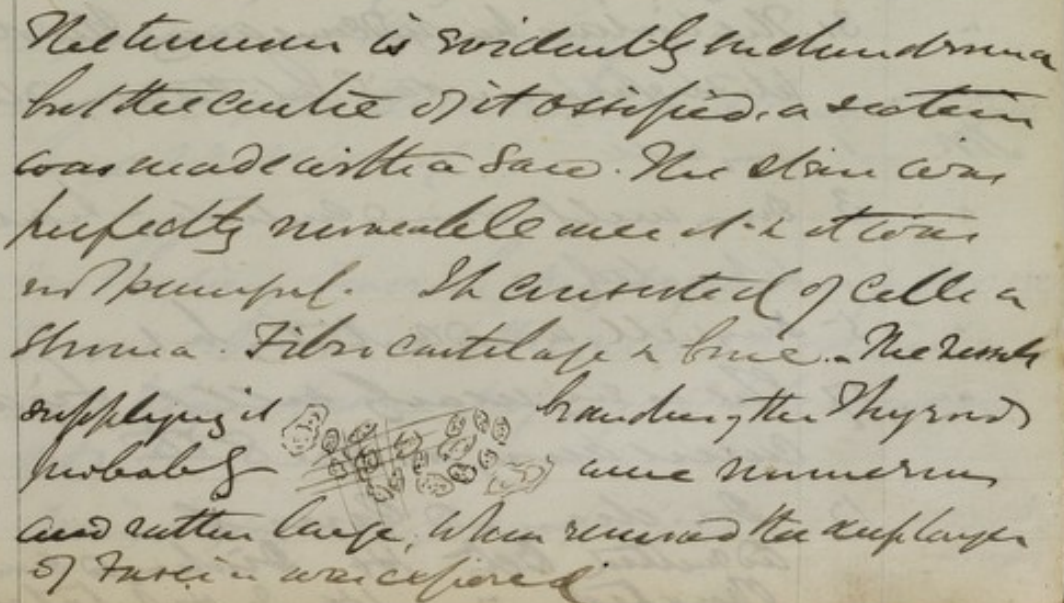 The tumour is evidently enchondroma
but the centre of it ossified, a section
was made with a saw. The skin was
perfectly moveable over it & it was
not painful. It consisted of cells a
stroma. Fibro cartilage & bone. The vessels
supplying it branches of the Thyroid
probably were numerous
and rather large, when removed the deep layer
of Fascia was exposed